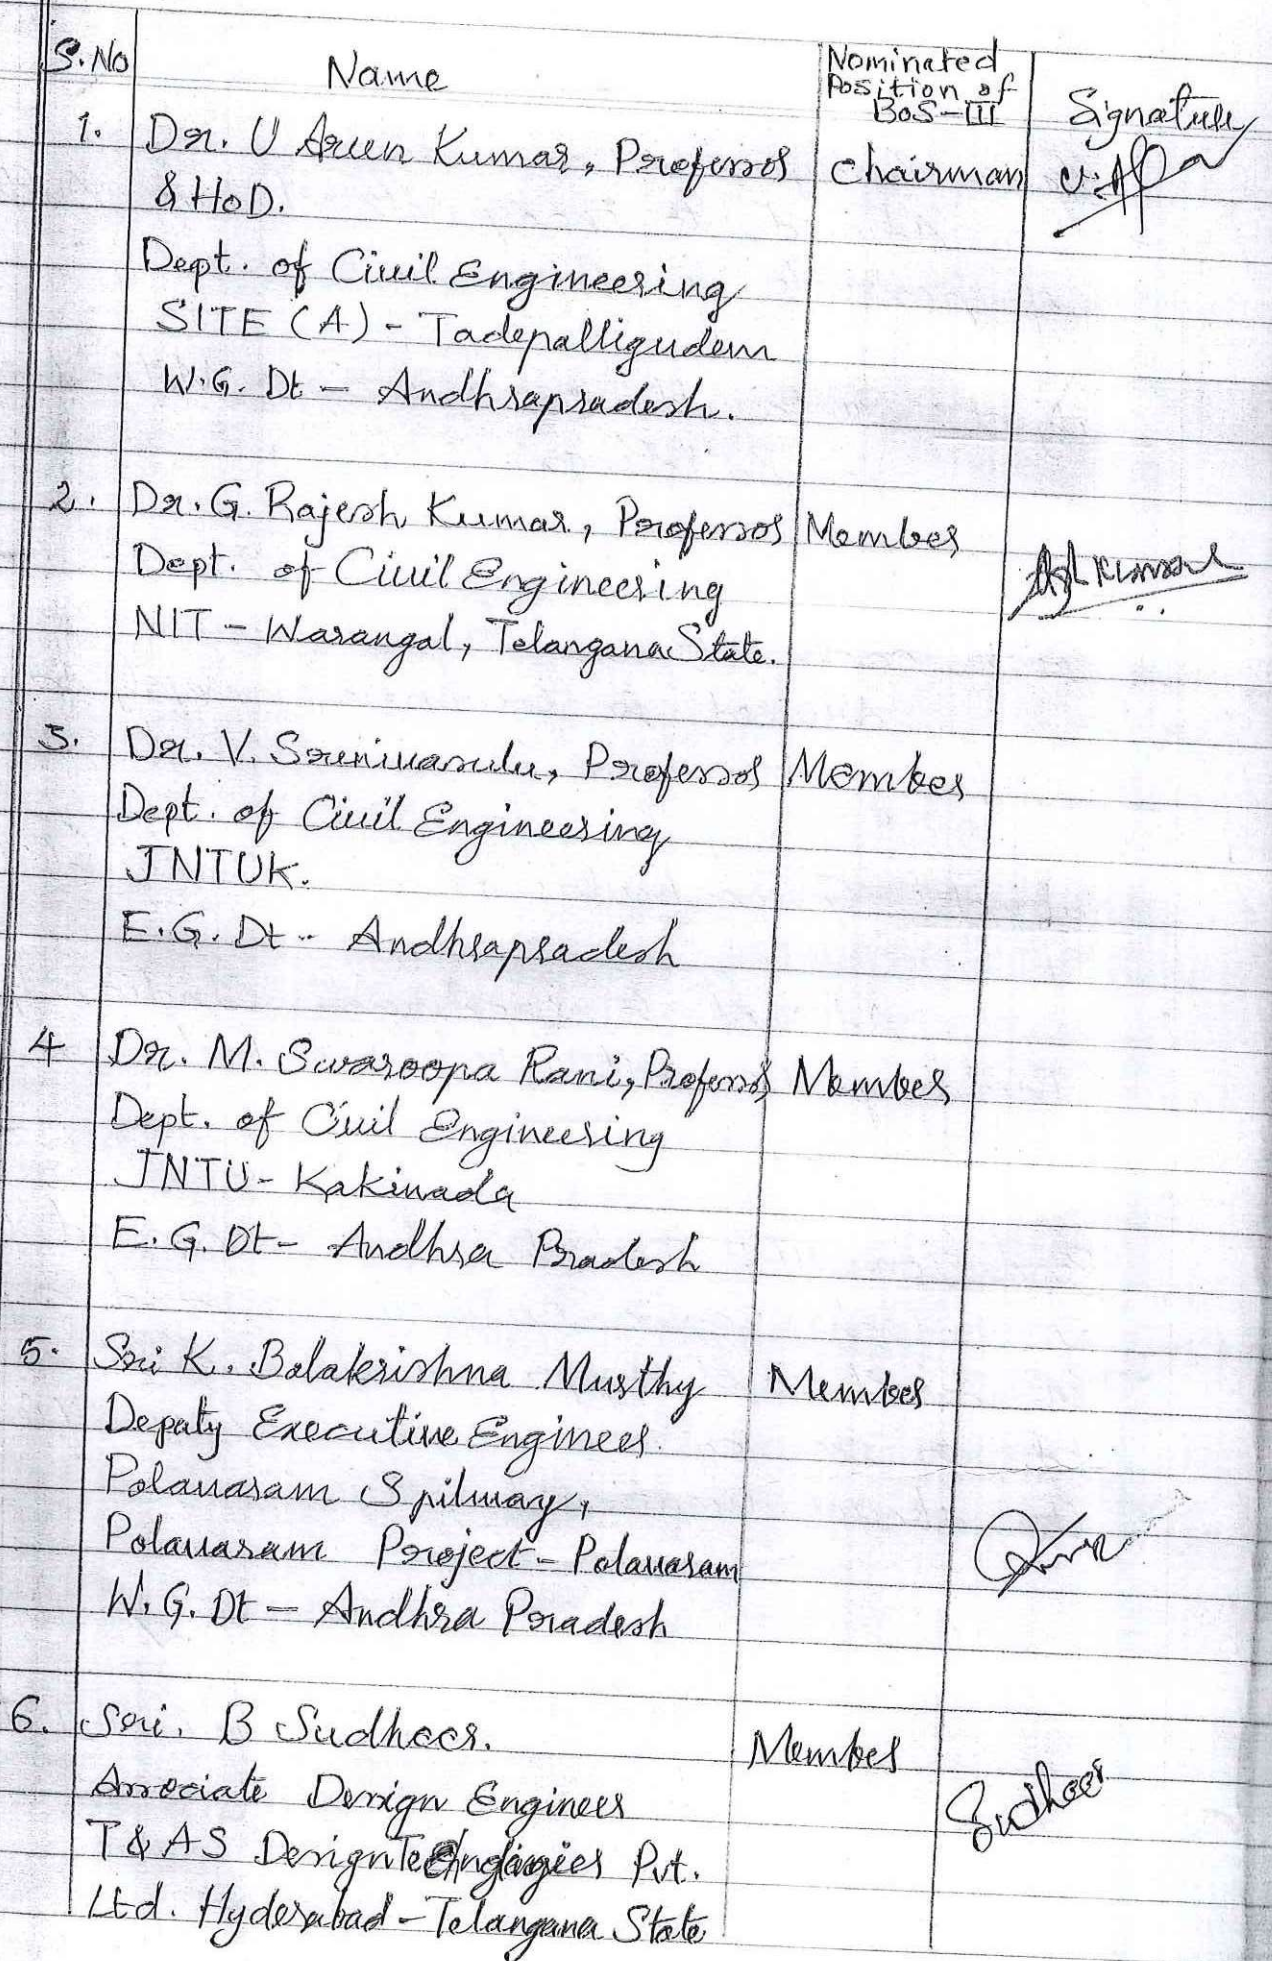 S.No Name Nominated Position of BoS-III Signature
1. Dr. U Arun Kumar, Professor Chairman
& HoD.
Dept. of Civil Engineering
SITE (A) - Tadepalligudem
W.G. Dt - Andhrapradesh.
2. Dr. G. Rajesh Kumar, Professor Member
Dept. of Civil Engineering
NIT - Warangal, Telangana State.
3. Dr. V. Srinivasulu, Professor Member
Dept. of Civil Engineering
JNTUK.
E.G. Dt - Andhrapradesh
4 Dr. M. Swaroopa Rani, Professor Member
Dept. of Civil Engineering
JNTU - Kakinada
E.G. Dt - Andhra Pradesh
5. Sri K. Balakrishna Murthy Member
Deputy Executive Engineer.
Polavaram Spilway,
Polavaram Project - Polavaram
W.G. Dt - Andhra Pradesh
6. Sri. B Sudheer. Member
Associate Design Engineer Sudheer
T & AS Design Technologies Pvt.
Ltd. Hyderabad - Telangana State